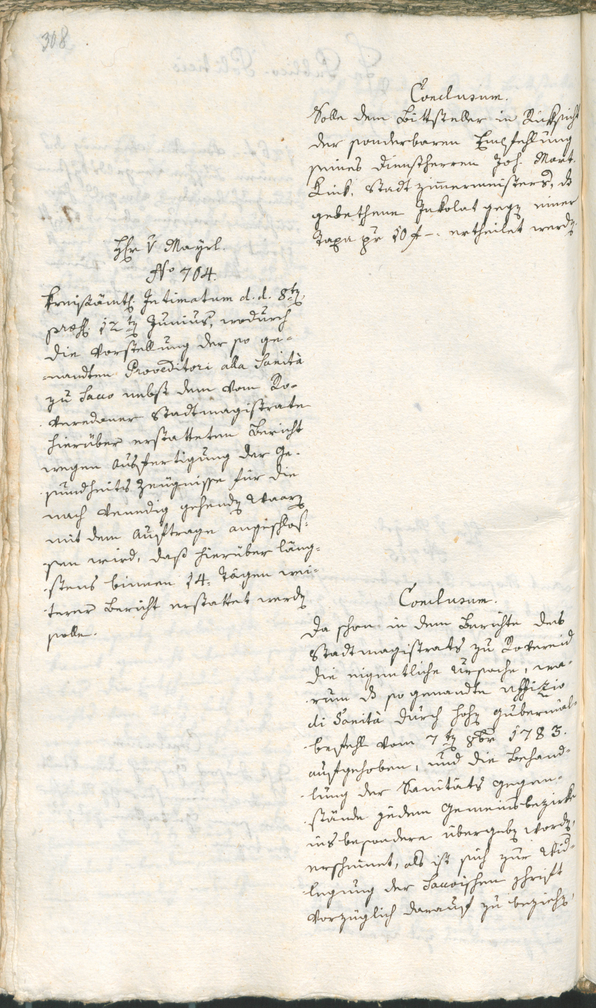 308
Conclusum.
Solle dem Bittsteller in Rücksicht
der sonderbaren Empfehlung
seines Dienstherren Joh. Mart.
Kink, Stadtzimmermeisters, dz
gebethene Inkolat gegen einer
Taxa pr 10 f – ertheilet werdn.
Hr v. Mayrl.
No 704.
Kreisämtl. Intimatum d. d. 8ten
præs. 12ten Junius, wodurch
die Vorstellung der so ge-
nandten Proveditori alla Sanità
zu Sacco nebst dem vom Ro-
veredaner Stadtmagistrate
hierüber erstatteten Bericht
wegen Ausfertigung der Ge-
sundheits Zeugnisse für die
nach Venedig gehendn Waarn
mit dem Auftrage angeschlos-
sen wird, daß hierüber läng-
stens binnen 14. Tägen wei-
terer Bericht erstattet werdn
solle.
Conclusum.
Da schon in dem Berichte des
Stadtmagistrats zu Rovereid
die eigentliche Ursache, wa-
rum dz so genandte Uffizio
di Sanità durch hohn Gubernial-
befehl vom 7ten 8br 1783.
aufgehoben, und die Behand-
lung der Sanitäts Gegen-
stände jedem Gemeinsbezirke
insbesondere übergebn wordn,
erscheinet, als ist sich zur Wid-
legung der Saccoischen Schrift
vorzüglich darauf zu beziehn,